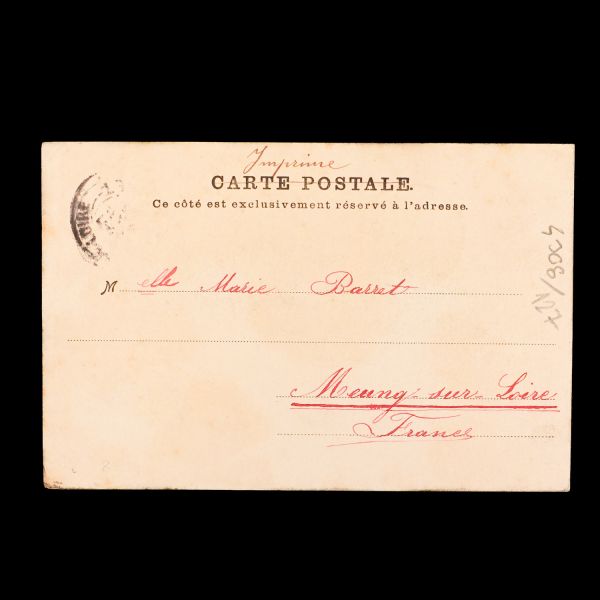 Imprime
CARTE POSTALE.
Ce côté est exclusivement réservé à l'adresse.
M elle Marie Barret
Meung-sur-Loire
France
LOIRE